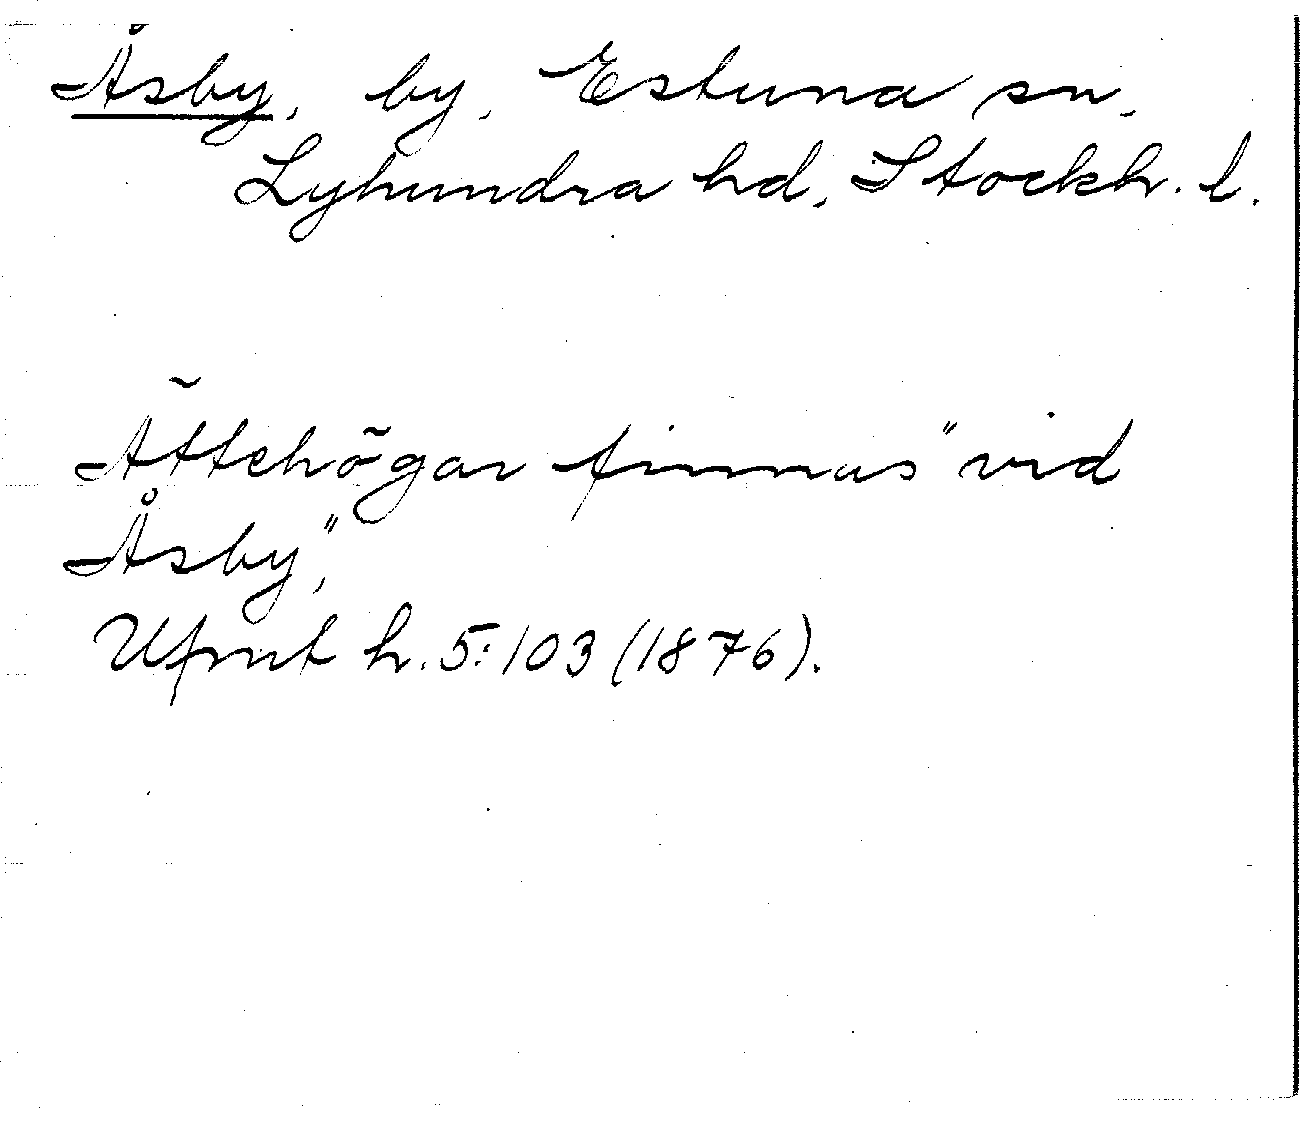 Åsby, by, Estuna sn,
Lyhundra hd, Stockh. l.
Ättehögar finnas "vid
Åsby",
Ufmt h. 5:103 (1876).